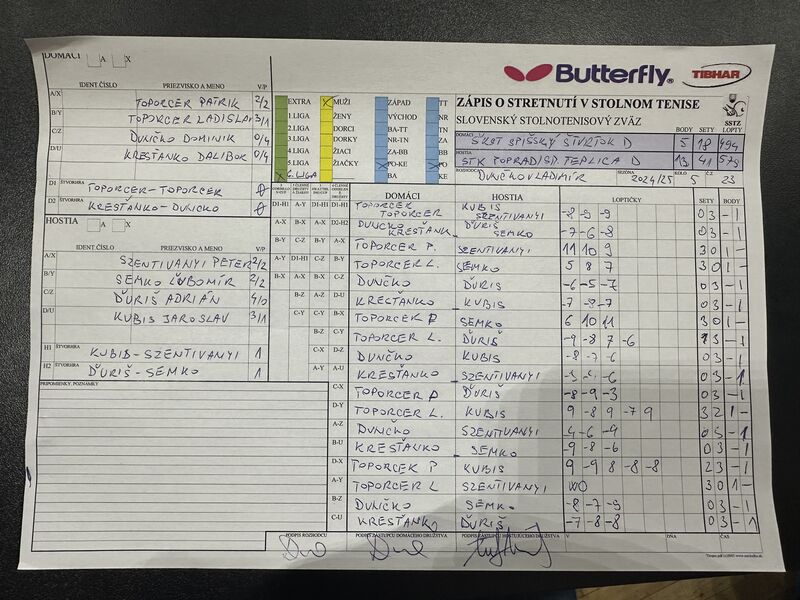 DOMÁCI A X
IDENT. ČÍSLO PRIEZVISKO A MENO V/P
A/X TOPORCER PATRIK 2/2
B/Y TOPORCER LADISLAV 3/1
C/Z DUNIČKO DOMINIK 0/4
D/U KRESŤANKO DALIBOR 0/4
D1 ŠTVORHRA TOPORCER-TOPORCER 0
D2 KRESŤANKO-DUNIČKO 0
HOSTIA A X
IDENT. ČÍSLO PRIEZVISKO A MENO V/P
A/X SZENTIVANYI PETER 2/2
B/Y SEMKO ĽUBOMÍR 2/2
C/Z ĎURIŠ ADRIÁN 4/0
D/U KUBIS JAROSLAV 3/1
H1 ŠTVORHRA KUBIS-SZENTIVANYI 1
H2 ŠTVORHRA ĎURIŠ-SEMKO 1
PRIPOMIENKY, POZNÁMKY
Butterfly TIBHAR
EXTRA X MUŽI ZÁPAD TT
1.LIGA ŽENY VÝCHOD NR
2.LIGA DORCI BA-TT TN
3.LIGA DORKY NR-TN ZA
4.LIGA ŽIACI ZA-BB BB
5.LIGA ŽIAČKY PO-KE PO
6. LIGA BA KE
ZÁPIS O STRETNUTÍ V STOLNOM TENISE
SLOVENSKÝ STOLNOTENISOVÝ ZVÄZ
SSTZ
BODY SETY LOPTY
DOMÁCI ŠKST SPIŠSKÝ ŠTVRTOK D 5 18 494
HOSTIA STK POPRAD/SP. TEPLICA D 13 41
ROZHODCA DUNIČKO VLADIMÍR SEZÓNA 2024/25 KOLO 5 Č.Z. 23
DOMÁCI HOSTIA LOPTIČKY SETY BODY
TOPORCER TOPORCER KUBIS SZENTIVANYI -8 -9 -9 0 3 - 1
DUNIČKO KRESŤANK. ĎURIŠ SEMKO -7 -6 -8 0 3 - 1
TOPORCER P. SZENTIVANYI 11 10 9 3 0 1 -
TOPORCER L. SEMKO 5 8 7 3 0 1 -
DUNIČKO ĎURIŠ -6 -5 -7 0 3 - 1
KRESŤANKO KUBIS -7 -7 0 3 - 1
TOPORCER P SEMKO 6 10 11 3 0 1 -
TOPORCER L. ĎURIŠ -9 -8 7 -6 1 3 - 1
DUNIČKO KUBIS -8 -7 -6 0 3 - 1
KRESŤANKO SZENTIVANYI 0 3 - 1
TOPORCER P ĎURIŠ -8 -9 -3 0 3 - 1
TOPORCER L. KUBIS 9 -8 9 -7 9 3 2 1 -
DUNIČKO SZENTIVANYI -6 -9 0 3 - 1
KRESŤANKO SEMKO -9 -8 -6 0 3 - 1
TOPORCER P KUBIS 9 -9 8 -8 -8 2 3 - 1
TOPORCER L SZENTIVANYI WO 3 0 1 -
DUNIČKO SEMKO -8 -7 -9 0 3 - 1
KRESŤANKO ĎURIŠ -7 -8 -8 0 3 - 1
PODPIS ROZHODCU PODPIS ZÁSTUPCU DOMÁCEHO DRUŽSTVA PODPIS ZÁSTUPCU HOSŤUJÚCEHO DRUŽSTVA V DŇA ČAS